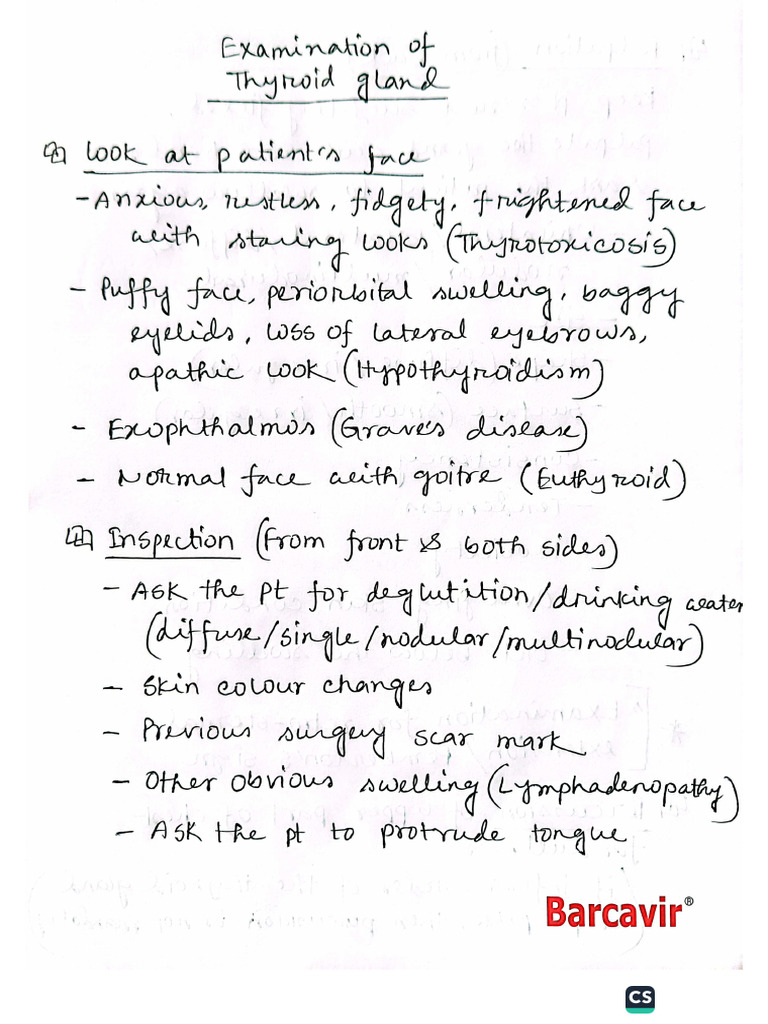 Examination of
Thyroid gland
Look at patient's face
- Anxious, restless, fidgety, frightened face
with staring looks (Thyrotoxicosis)
- Puffy face, periorbital swelling, baggy
eyelids, loss of lateral eyebrows,
apathic look (Hypothyroidism)
- Exophthalmos (Grave's disease)
- Normal face with goitre (Euthyroid)
Inspection (From front & both sides)
- Ask the pt for deglutition/drinking water
(diffuse/single/nodular/multinodular)
- Skin colour changes
- Previous surgery scar mark
- Other obvious swelling (Lymphadenopathy)
- Ask the pt to protrude tongue
Barcavir®
CS